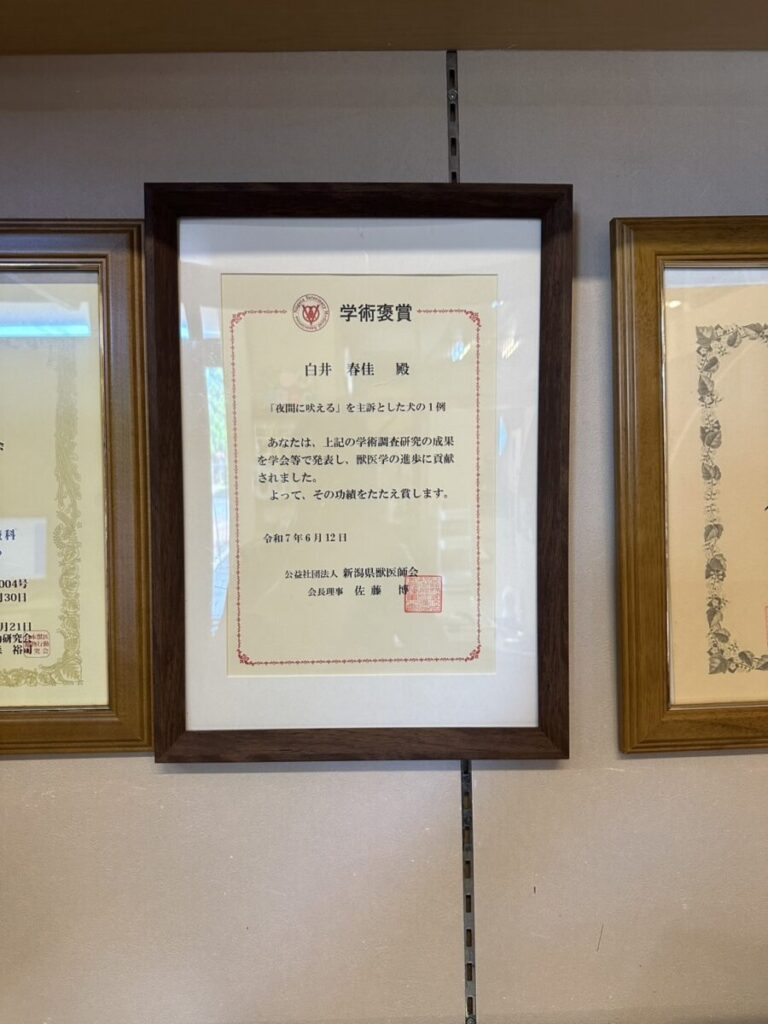 学術褒賞
白井 春佳 殿
「夜間に吠える」を主訴とした犬の1例
あなたは、上記の学術調査研究の成果
を学会等で発表し、獣医学の進歩に貢献
されました。
よって、その功績をたたえ賞します。
令和7年6月12日
公益社団法人 新潟県獣医師会
会長理事 佐藤 博
科
004号
月30日
月21日
研究会
裕司